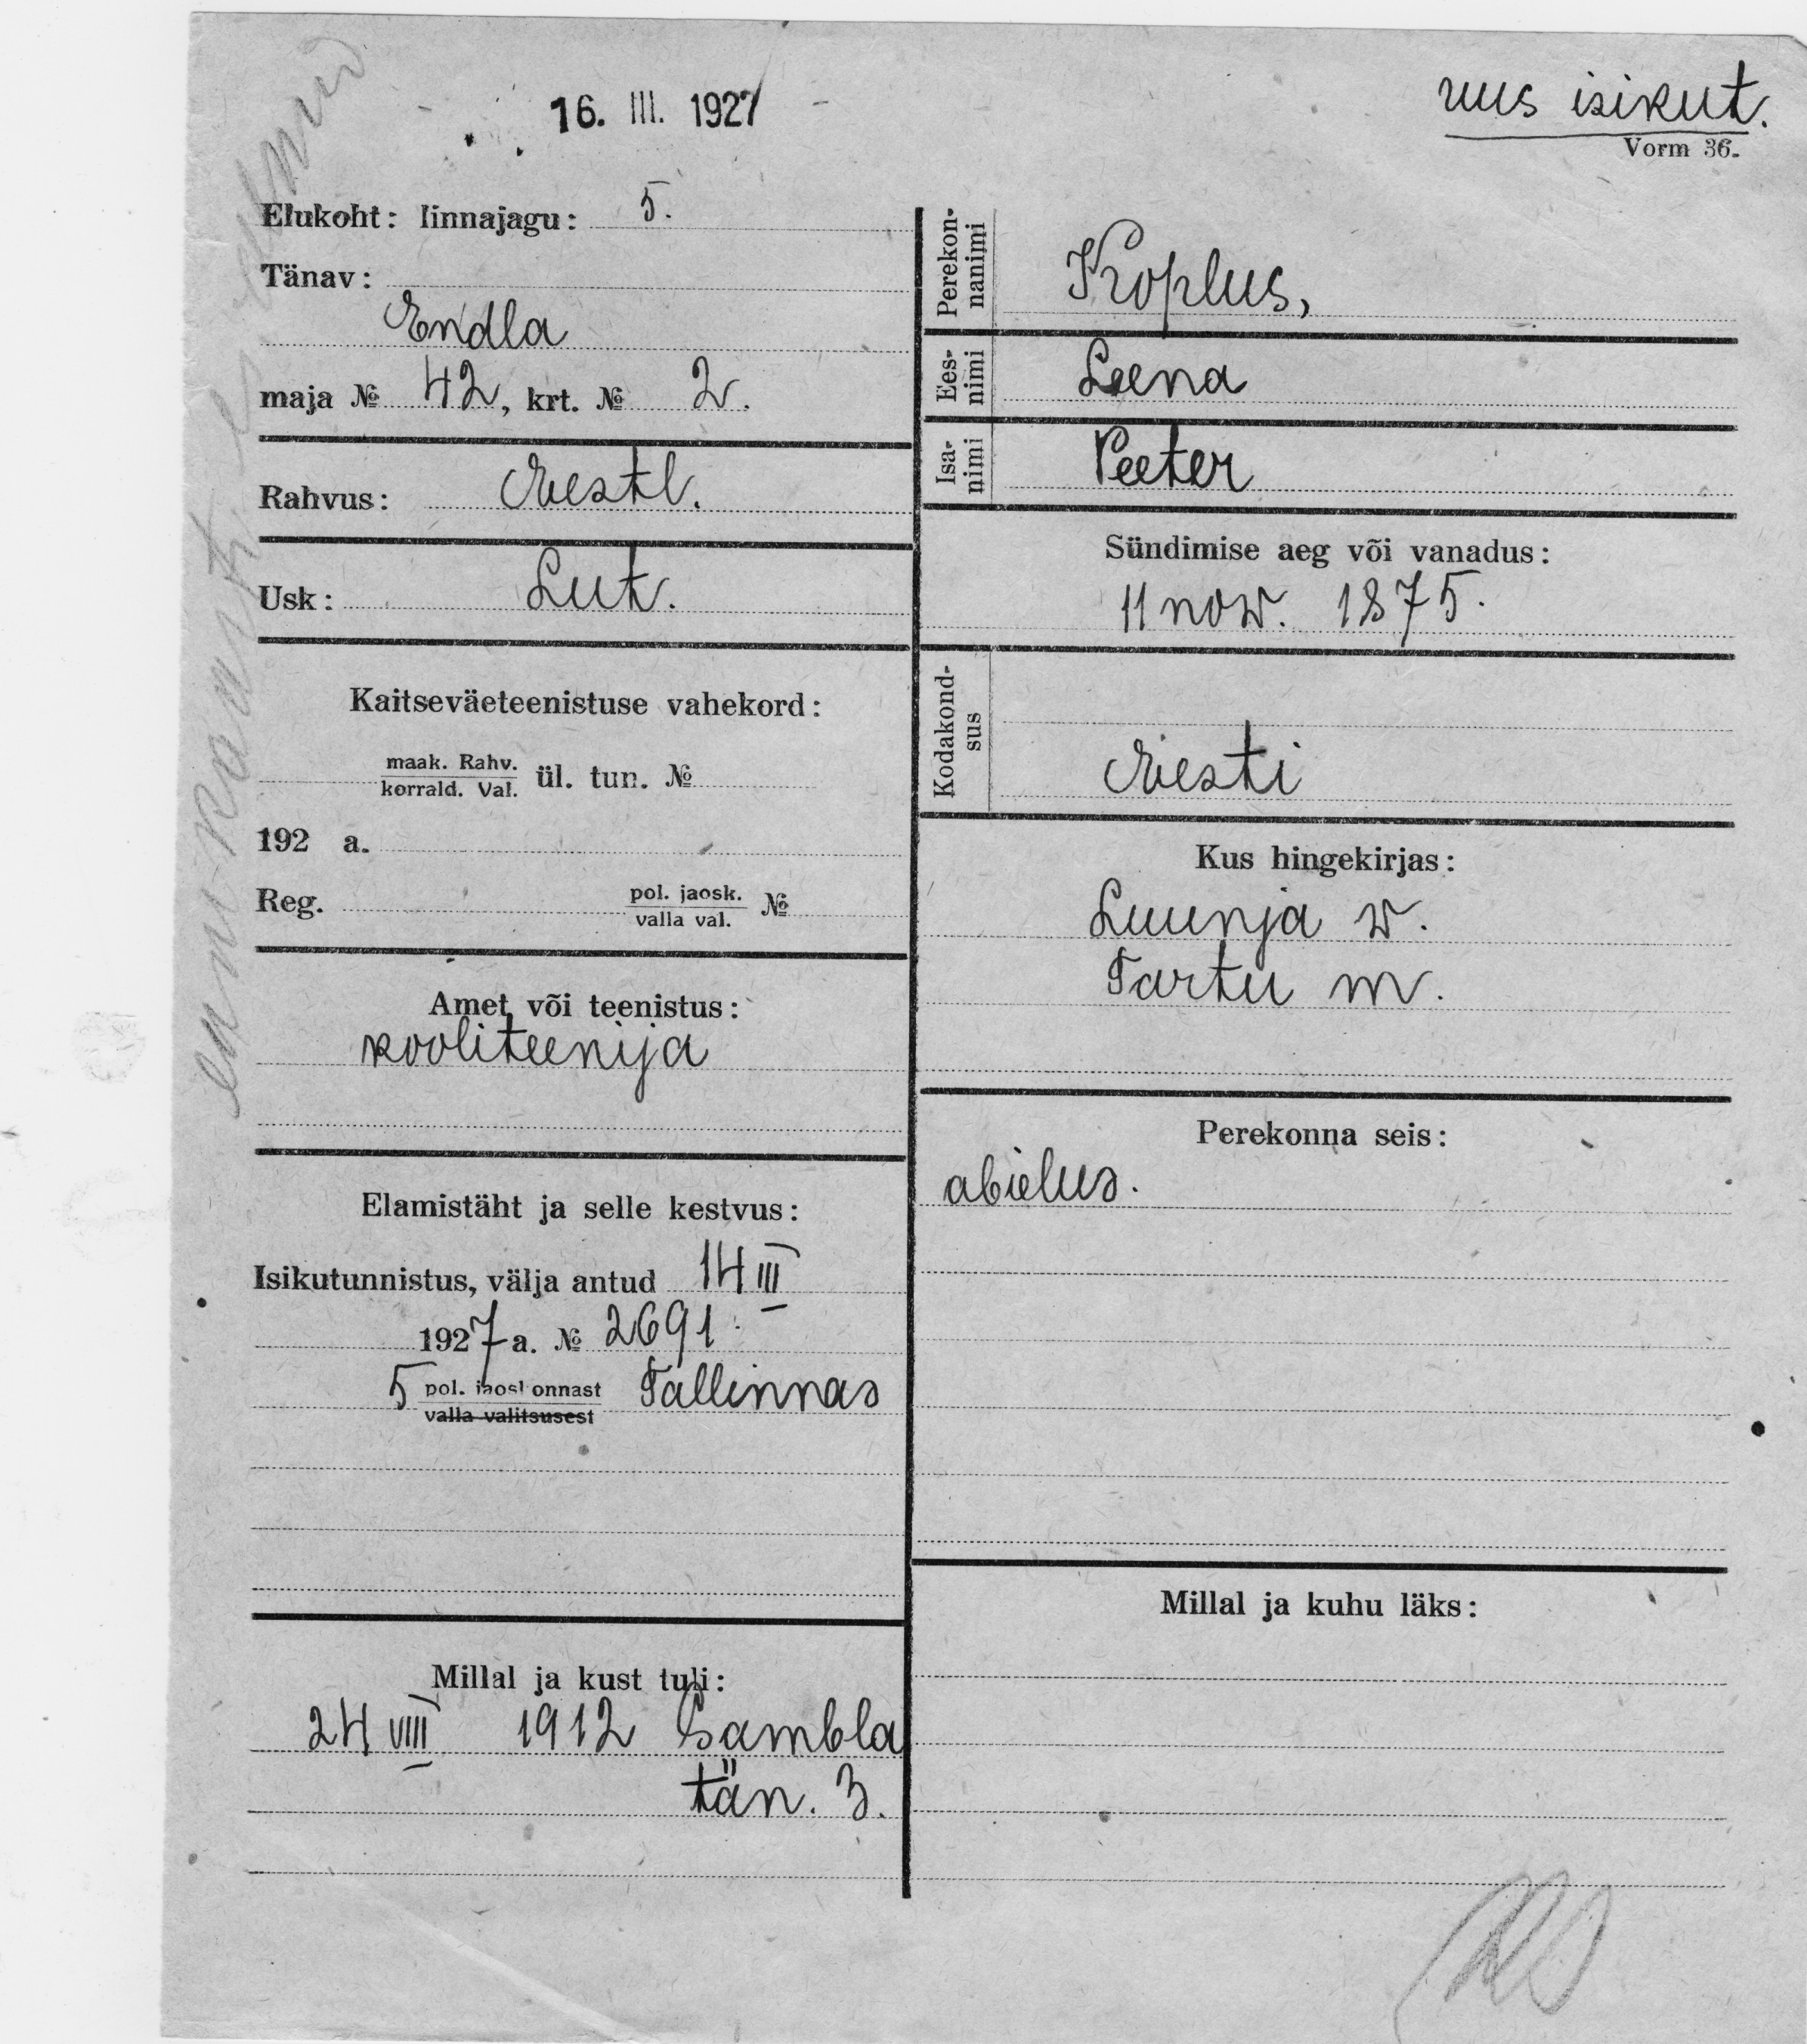 16. III. 1927
uus isikut.
Vorm 36.
Elukoht: linnajagu: 5.
Tänav:
Endla
maja № 42, krt. № 2.
Rahvus: Eestl.
Usk: Lut.
Kaitseväeteenistuse vahekord:
maak. Rahv.
korrald. Val. ül. tun. №
192 a.
Reg. pol. jaosk.
valla val. №
Amet või teenistus:
kooliteenija
Elamistäht ja selle kestvus:
Isikutunnistus, välja antud 14 III
1927 a. № 2691.
5 pol. jaoskonnast Tallinnas
valla valitsusest
Millal ja kust tuli:
24 VIII 1912 Sambla
tän. 3.
Perekon-
nanimi
Koplus,
Ees-
nimi
Leena
Isa-
nimi
Peeter
Sündimise aeg või vanadus:
11 now. 1875.
Kodakond-
sus
Eesti
Kus hingekirjas:
Luunja w.
Tartu m.
Perekonna seis:
abielus.
Millal ja kuhu läks: